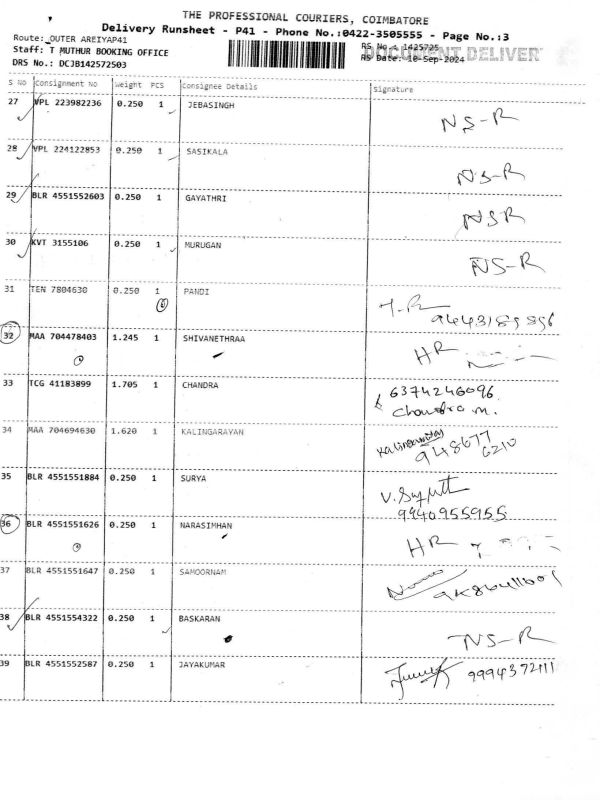 THE PROFESSIONAL COURIERS, COIMBATORE
Delivery Runsheet - P41 - Phone No.:0422-3505555 - Page No.:3
Route: OUTER AREIYAP41
RS No.: 1425725
DOCUMENT DELIVER
Staff: T MUTHUR BOOKING OFFICE
RS Date: 10-Sep-2024
DRS No.: DCJB142572503
S No Consignment No Weight PCS Consignee Details Signature
27 VPL 223982236 0.250 1 JEBASINGH NS-R
28 VPL 224122853 0.250 1 SASIKALA NS-R
29 BLR 4551552603 0.250 1 GAYATHRI NSR
30 KVT 3155106 0.250 1 MURUGAN NS-R
31 TEN 7804630 0.250 1 PANDI
32 MAA 704478403 1.245 1 SHIVANETHRAA HR
33 TCG 41183899 1.705 1 CHANDRA 6374246096
Chandra m.
34 MAA 704694630 1.620 1 KALINGARAYAN
948677
6210
35 BLR 4551551884 0.250 1 SURYA
9940955955
36 BLR 4551551626 0.250 1 NARASIMHAN HR
37 BLR 4551551647 0.250 1 SAMOORNAM
38 BLR 4551554322 0.250 1 BASKARAN NS-R
39 BLR 4551552587 0.250 1 JAYAKUMAR 9994372111